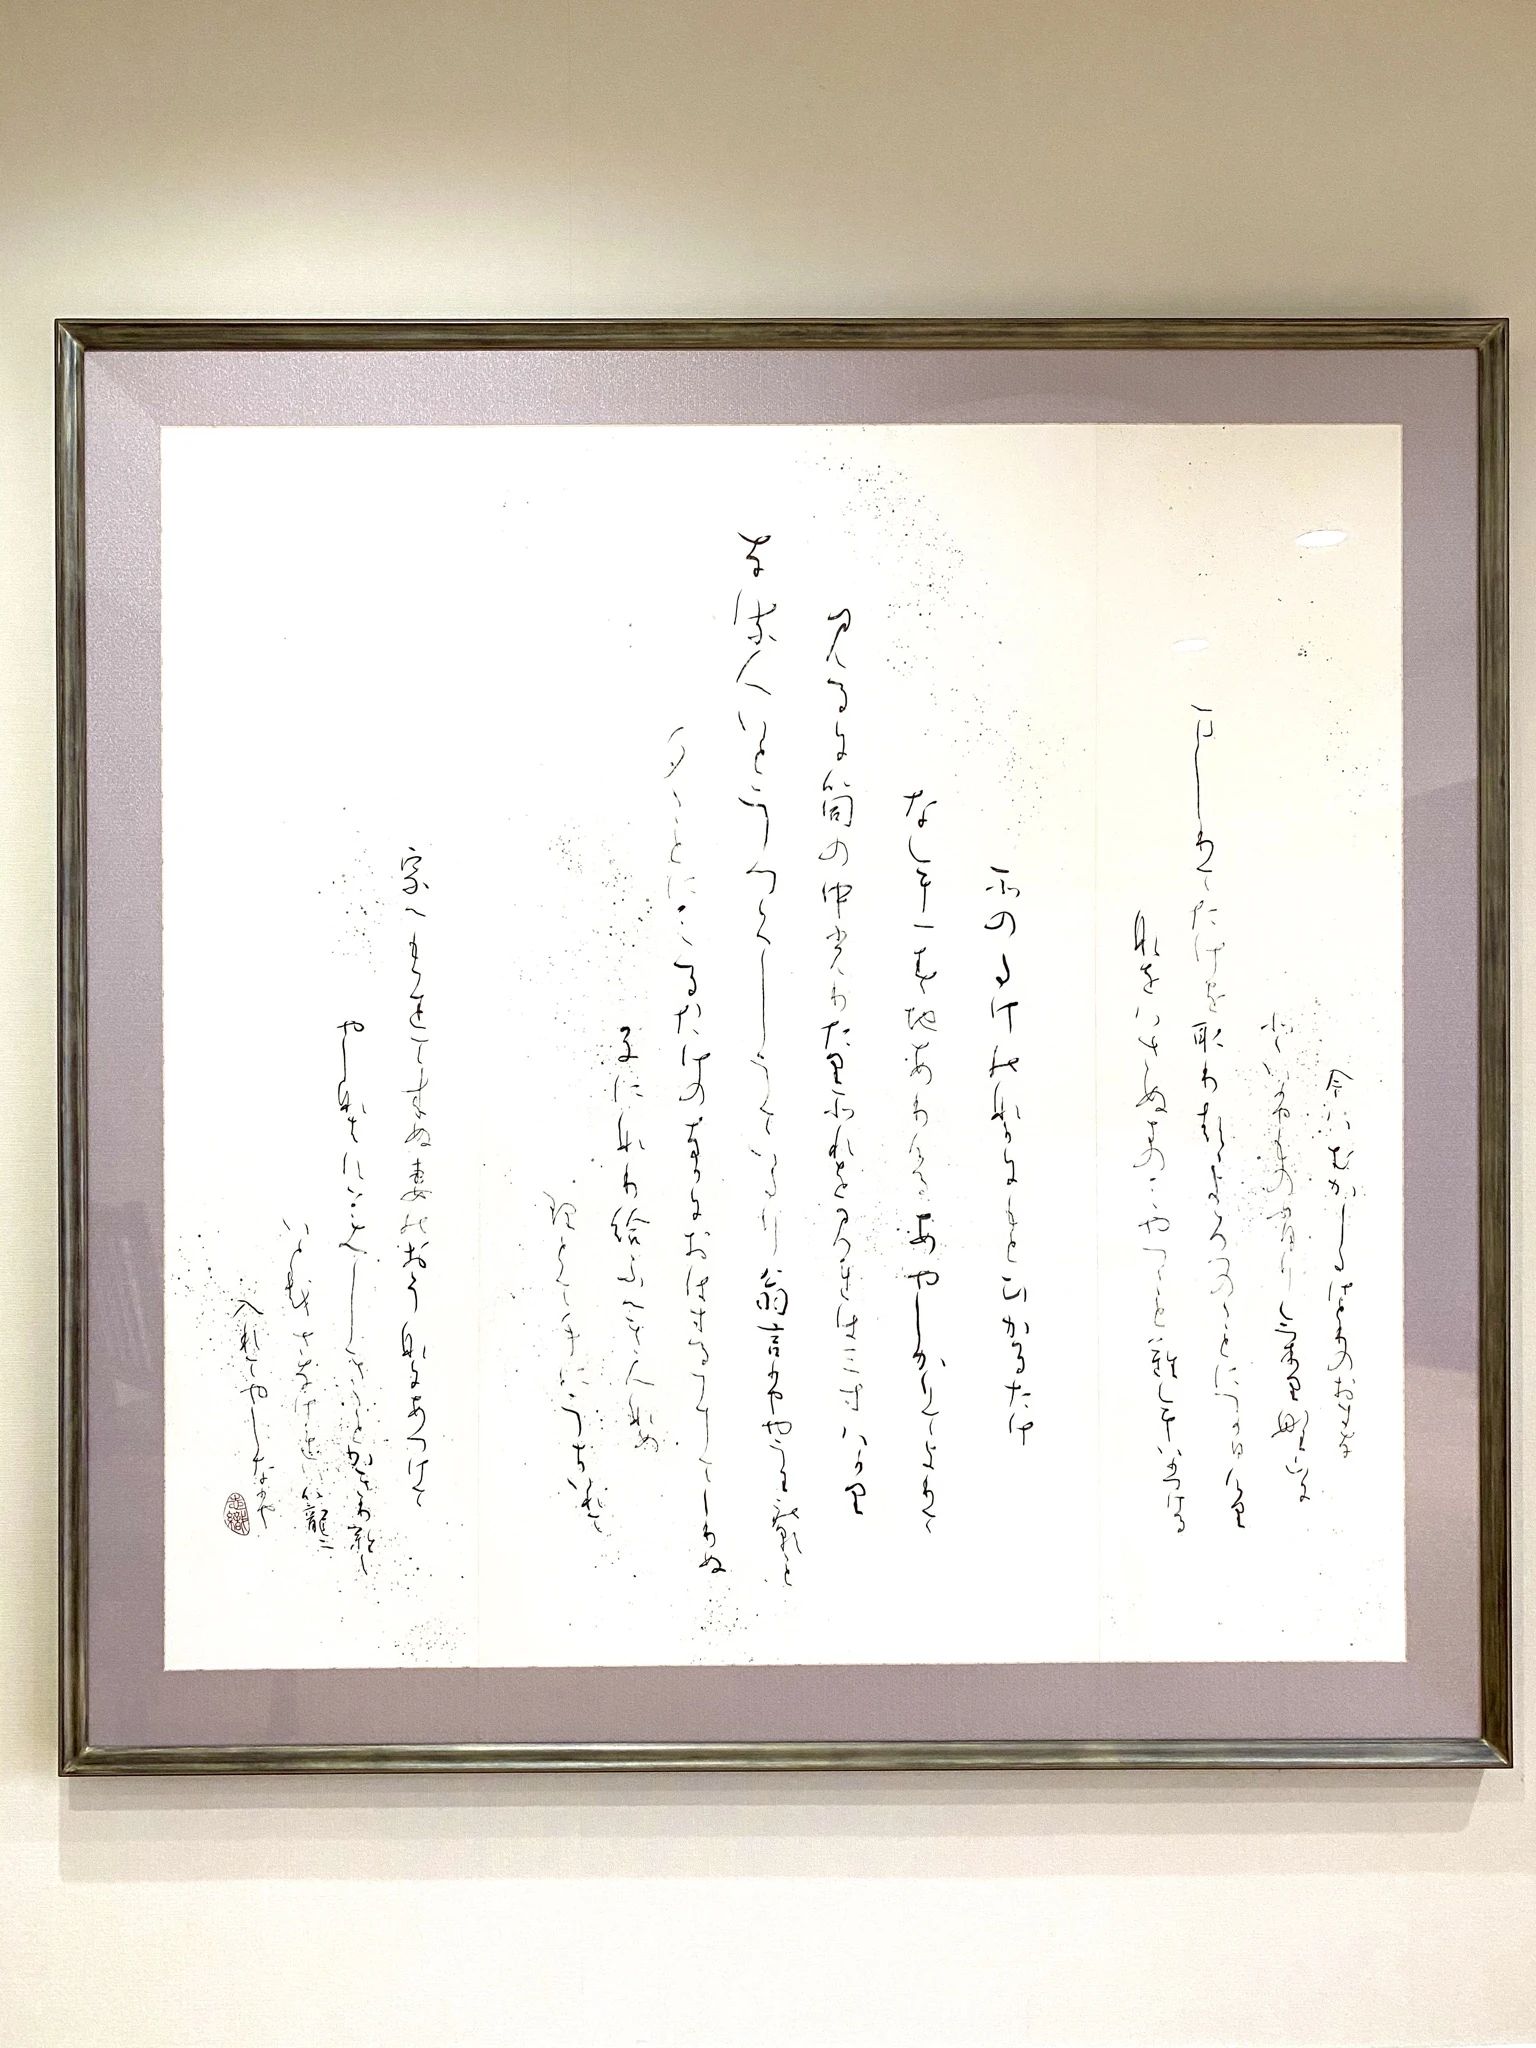 今はむかしたけとりのおきな
といふもの有けり野山に
ましりてたけを取りつつよろつのことにつかひけり
名をはさぬきのみやつことなむいひける
そのたけのなかにもと光るたけ
なむ一すちありけるあやしかりてよりて
見るに筒の中光りたりそれを見れは三寸はかり
なる人いとうつくしうてゐたり翁言ふやう我朝こと
夕ことに見るたけのなかにおはするにてしりぬ
子になり給ふへき人なめ
りとて手にうち入れて
家へもちて来ぬ妻のおうなにあつけて
やしなはすうつくしきことかきりなし
いとをさなけれは籠に
入れてやしなふ